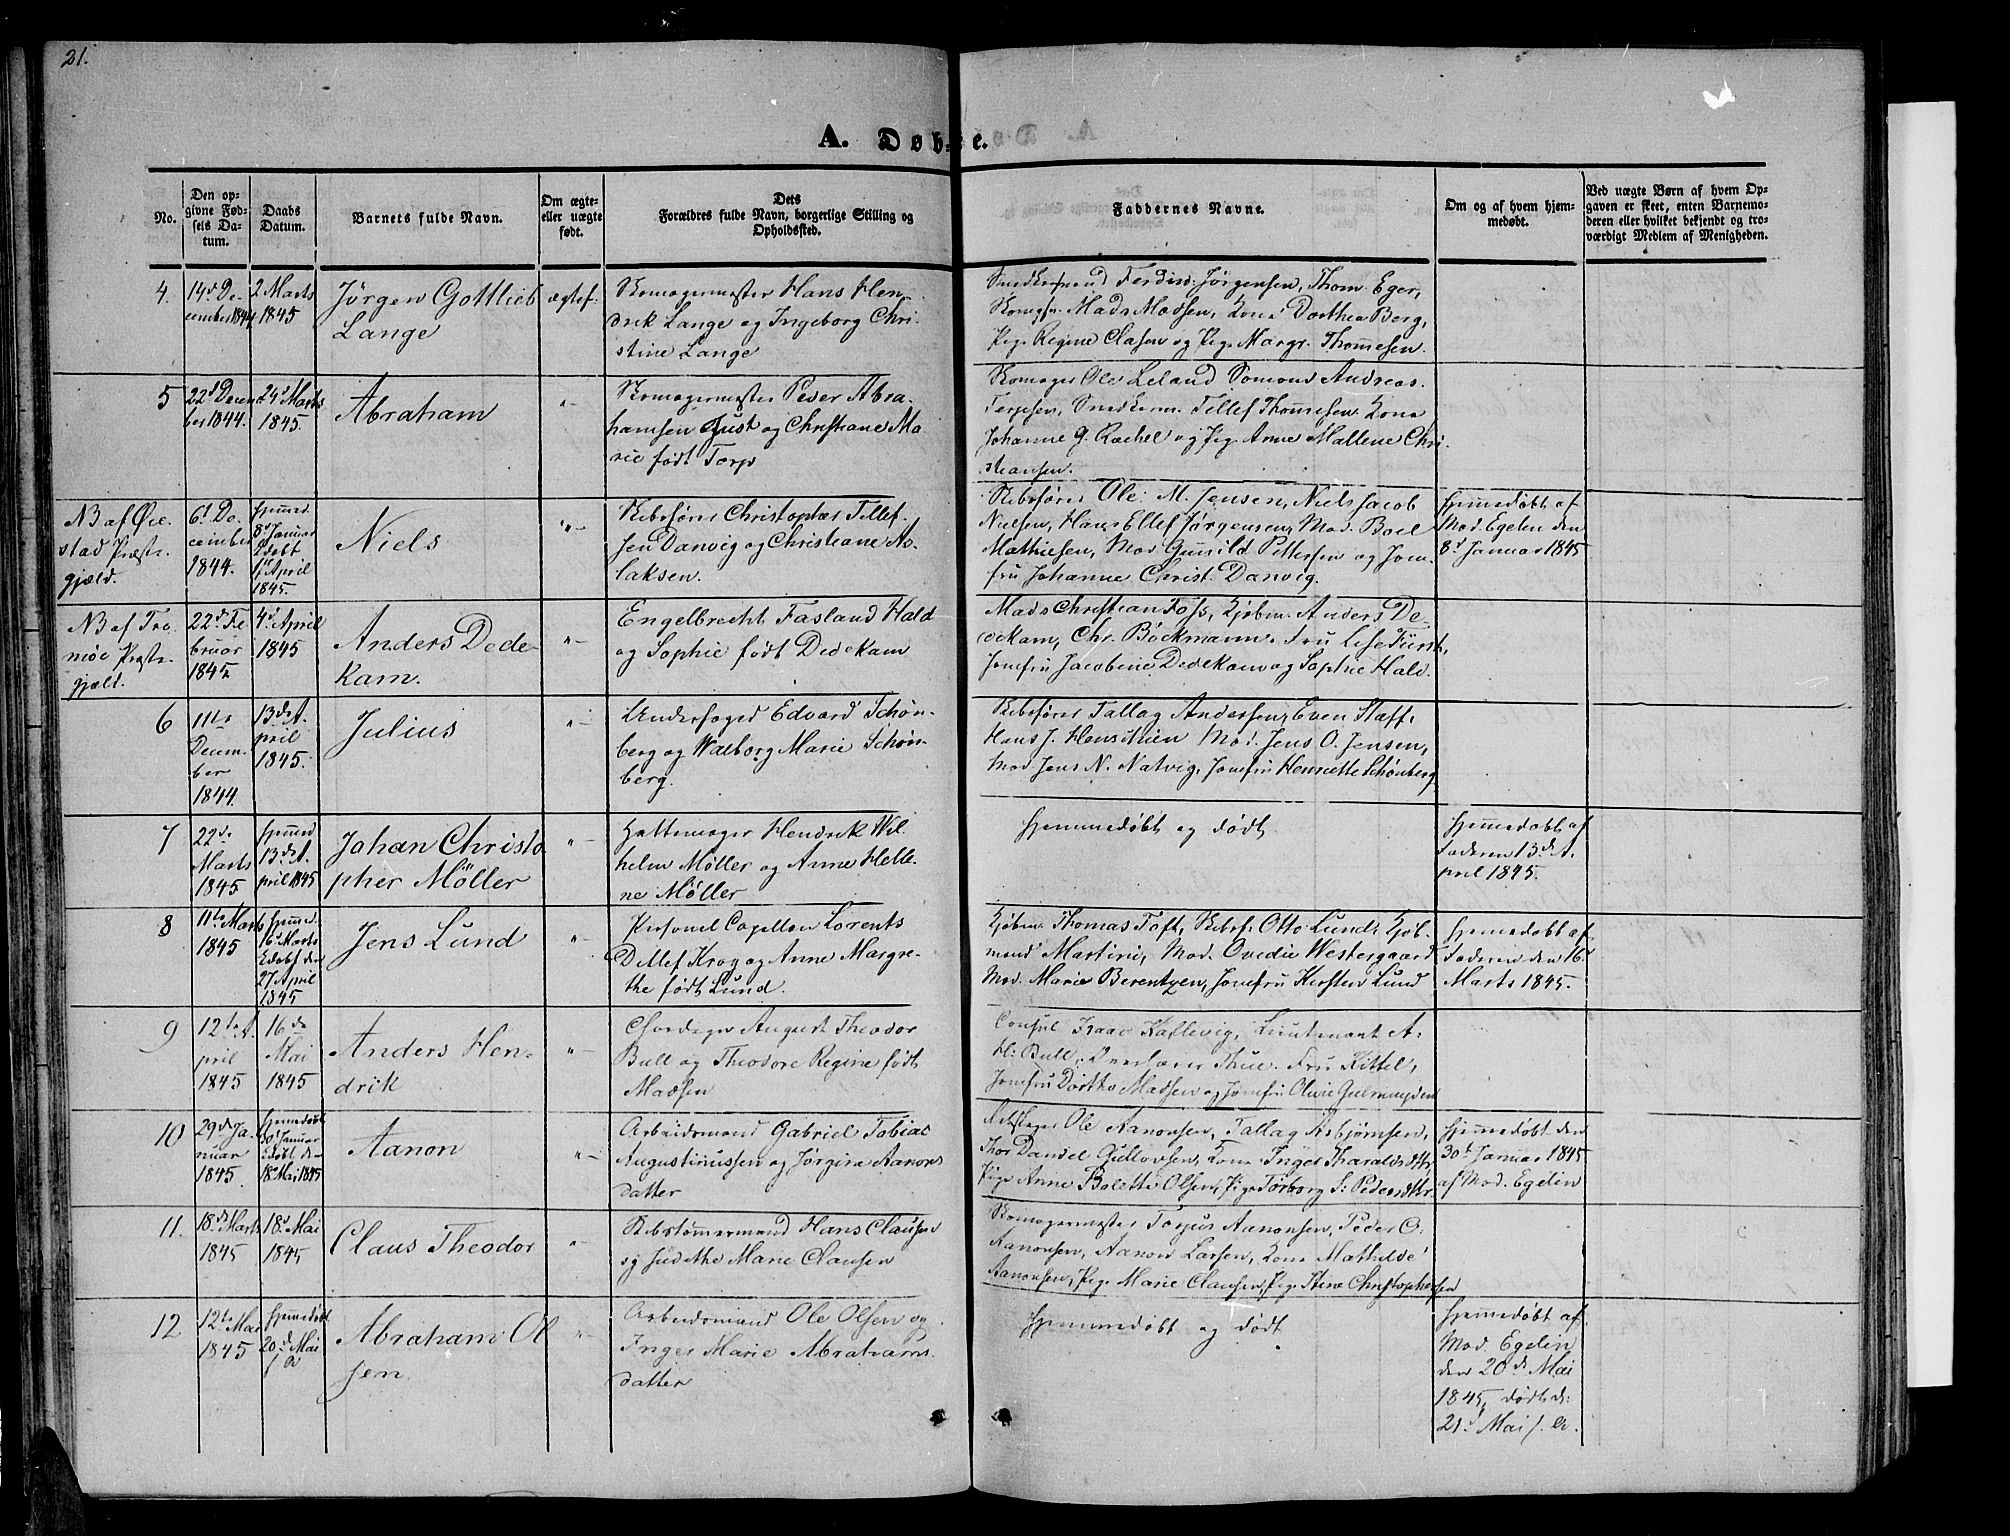 21.
A. Døbte.
No.
Den op-
givne Fød-
sels Da-
tum.
Daabs
Datum.
Barnets fulde Navn.
Om ægte-
eller uægte
født.
Dets
Forældres fulde Navn, borgerlige Stilling og
Opholdssted.
Faddernes Navne.
Om og af hvem hjem-
medøbt.
Ved uægte Børn af hvem Op-
gaven er skeet, enten Barnemo-
deren eller hvilket bekjendt og tro-
værdigt Medlem af Menigheden.
4.
14d De-
cember 1844
2 Marts
1845
Jörgen Gottlieb
Lange
ægtef.
Skomagermester Hans Hen-
drik Lange og Ingeborg Chri-
stine Lange
Snedkersvend Ferdin. Jörgensen, Thom. Eger,
Mads Madsen, Kone Dorthea Berg,
Pige Regine Clasen og Pige Margr. Thomesen.
5
22d Decem
ber 1844.
24d Marts
1845.
Abraham
"-
Skomagermester Peder Abra-
hamsen Just og Christiane Ma-
rie født Torp
Skomager Ole Leland, Somand Andreas
Terjesen, Snedkerm. Tellef Thomesen. Kone
Johanne G. Rachel og Pige Anne Mallene Chri-
stiansen.
NB af Øie-
stad Præste-
gjæld.
6d De-
cember
1844.
hjemmed.
8d Januar
Edøbt
1d April
1845.
Niels
"-
Skibsfører Christopher Tellef-
sen Danvig og Christiane As-
laksen.
Skibsfører Ole M. Jensen, Niels Jacob
Nielsen, Hans Ellef Jørgensen, Mad. Boel
Mathiesen, Mad. Gunild Pettersen og Jom-
fru Johanne Christ. Danvig.
Hjemmedøbt af
Mad. Egelin den
8d Januar 1845
NB af Tro-
møe Præste-
gjæld.
22d Fe
bruar
1845
4d April
1845
Anders Dede-
kam.
"-
Engelbrecht Fasland Hald
og Sophie født Dedekam
Mads Christian Foss, Kjøbm. Anders De-
dekam, Chr. Böckmann. Fru Lise Fürst,
Jomfru Jacobine Dedekam og Sophie Hald.
6
11te
Decem-
ber
1844.
13de A-
pril
1845.
Julius
"-
Underfoged Edvard Schøn-
berg og Walborg Marie Schøn-
berg.
Skibsfører Tallag Andersen, Even Staff,
Hans J. Mad. Jens O. Jensen,
Mad. Jens N. Natvig, Jomfru Henriette Schønberg
7
22de
Marts
1845
hjemmed
13de A-
pril 1845
Johan Christo
pher Möller
"-
Hattemager Hendrik Wil-
helm Møller og Anne Helle-
ne Møller
Hjemmedøbt og død.
Hjemmedøbt af
Faderen 13de A-
pril 1845.
8
11te Marts
1845
hjemmed.
16d Marts
Edøbt den
27 April
1845
Jens Lund
"-
Personel Capellan Lorents
Ditlef Krog og Anne Margre-
the født Lund.
Kjøbm. Thomas Toft, Skibsf. Otto Lund, Kjøb-
mand Martini, Mad. Ovedie Westergaard
Mad. Marie Berentzen, Jomfru Kirsten Lund
Hjemmedøbt af
Faderen den 16d
Marts 1845.
9
12te A-
pril
1845
16de
Mai
1845
Anders Hen-
drik
"-
August Theodor
Bull og Theodore Regine født
Madsen
Consul Isaac Kallevig, Lieutenant A.
H. Bull, Overlærer Thue. Fru Kittel,
Jomfru Dorthe Madsen og Jomfru Olive
10
29de Ja-
nuar
1845.
hjemmedøbt
30d Januar
Edøbt de
18de Mai 1845
Aanon
"-
Arbeidsmand Gabriel Tobias
Augustinussen og Jörgine Aanons
datter
Ole Aanonsen, Tallag Asbjørnsen,
Thor Daniel Gullovsen, Kone Inger Tharaldsdttr
Pige Anne Bolette Olsen, Pige Torborg S. Pedersdttr.
Hjemmedøbt den
30d Januar 1845
af Mad. Egelin
11.
18de Marts
1845
18d Mai
1845
Claus Theodor
"-
Skibstømmermand Hans Clausen
og Judithe Marie Clausen
Skomagermester Torjus Aanonsen, Peder O.
Aanonsen, Aanon Larsen, Kone Mathilde
Aanonsen, Pige Marie Clausen, Pige Stine Christophersen
12
12te Mai
1845
hjemmedøbt
20de Mai
s. A.
Abraham Ol
sen.
"-
Arbeidsmand Ole Olsen og
Inger Marie Abrahams-
datter
Hjemmedøbt og død
Hjemmedøbt af
Mad. Egelin
den 20de Mai
1845, død d:
21d Mai s. A.